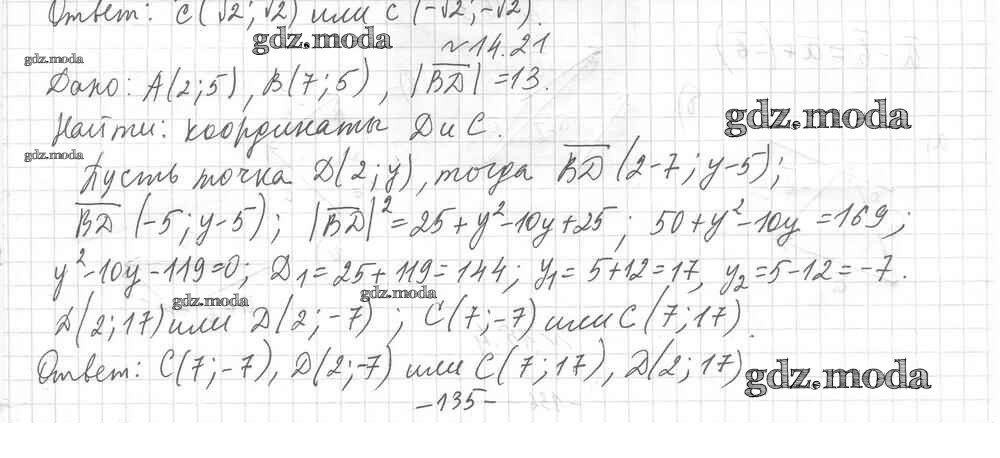 Ответ: С(√2; √2) или С(-√2; -√2).
gdz.moda
№14.21
gdz.moda
Дано: А(2; 5), В(7; 5), |BD| = 13.
gdz.moda
Найти: координаты D и С.
gdz.moda
Пусть точка D(2; y), тогда BD (2-7; y-5);
BD (-5; y-5); |BD|² = 25 + y² - 10y + 25; 50 + y² - 10y = 169;
y² - 10y - 119 = 0; D₁ = 25 + 119 = 144; y₁ = 5 + 12 = 17, y₂ = 5 - 12 = -7.
gdz.moda
gdz.moda
D(2; 17) или D(2; -7); С(7; -7) или С(7; 17).
Ответ: С(7; -7), D(2; -7) или С(7; 17), D(2; 17)
gdz.moda
-135-